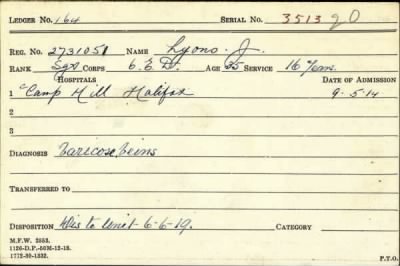 LEDGER NO. 164 SERIAL NO. 3513 90
REG. NO. 2731051 NAME Lyons. J.
RANK Sgt CORPS C.E.D. AGE 35 SERVICE 16 Yrs.
HOSPITALS DATE OF ADMISSION
1 Camp Hill Halifax 9-5-19
2
3
DIAGNOSIS Varicose Veins
TRANSFERRED TO
DISPOSITION Dis to Unit - 6-6-19. CATEGORY
M.F.W. 2553.
1126-D.P.-50M-12-18.
1772-39-1332. P.T.O.